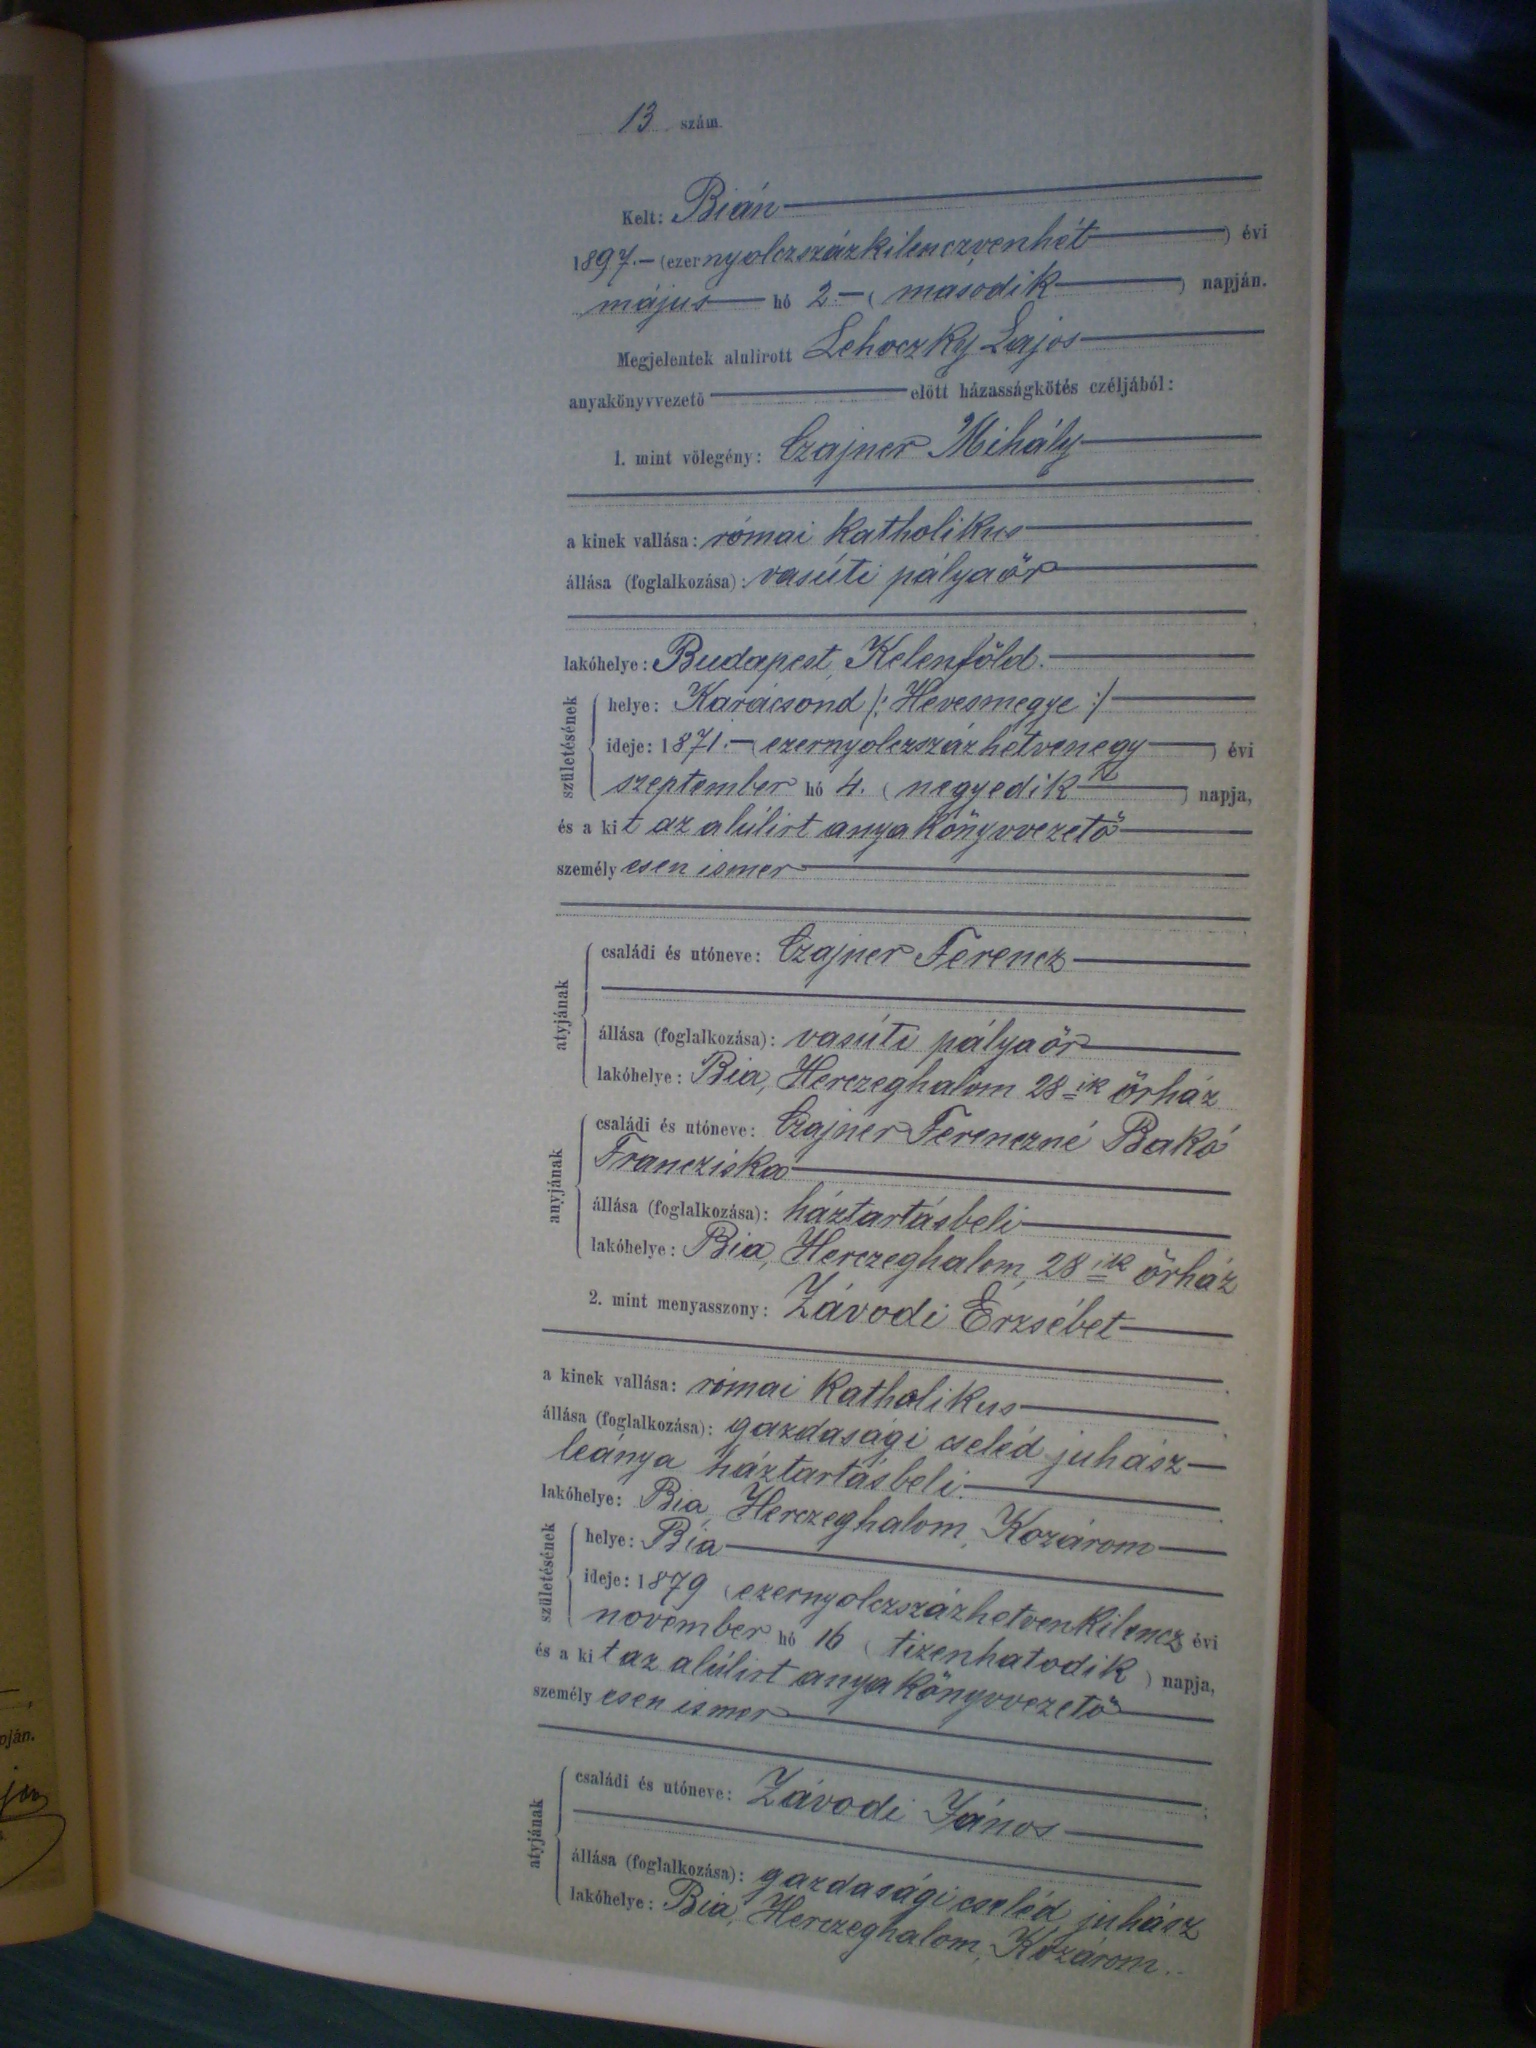 13 szám.
Kelt: Bián
1897.- (ezernyolczszázkilenczvenhét) évi
május hó 2.- (második) napján.
Megjelentek alulirott Lehoczky Lajos
anyakönyvvezető előtt házasságkötés czéljából:
1. mint vőlegény: Czajner Mihály
a kinek vallása: római katholikus
állása (foglalkozása): vasúti pályaőr
lakóhelye: Budapest, Kelenföld.
születésének
helye: Karácsond /: Hevesmegye :/
ideje: 1871.- (ezernyolczszázhetvenegy) évi
szeptember hó 4. (negyedik) napja,
és a kit az alúlirt anyakönyvvezető
személyesen ismer
atyjának
családi és utóneve: Czajner Ferencz
állása (foglalkozása): vasúti pályaőr
lakóhelye: Bia, Herczeghalom 28-ik őrház
anyjának
családi és utóneve: Czajner Ferenczné Bakó
Francziska
állása (foglalkozása): háztartásbeli
lakóhelye: Bia, Herczeghalom, 28-ik őrház
2. mint menyasszony: Závodi Érzsébet
a kinek vallása: római katholikus
állása (foglalkozása): gazdasági cseléd juhász
leánya háztartásbeli.
lakóhelye: Bia, Herczeghalom, Kozárom
születésének
helye: Bia
ideje: 1879 (ezernyolczszázhetvenkilencz évi
november hó 16 (tizenhatodik) napja,
és a kit az alúlirt anyakönyvvezető
személyesen ismer
atyjának
családi és utóneve: Závodi János
állása (foglalkozása): gazdasági cseléd juhász
lakóhelye: Bia, Herczeghalom, Kozárom.
pján.